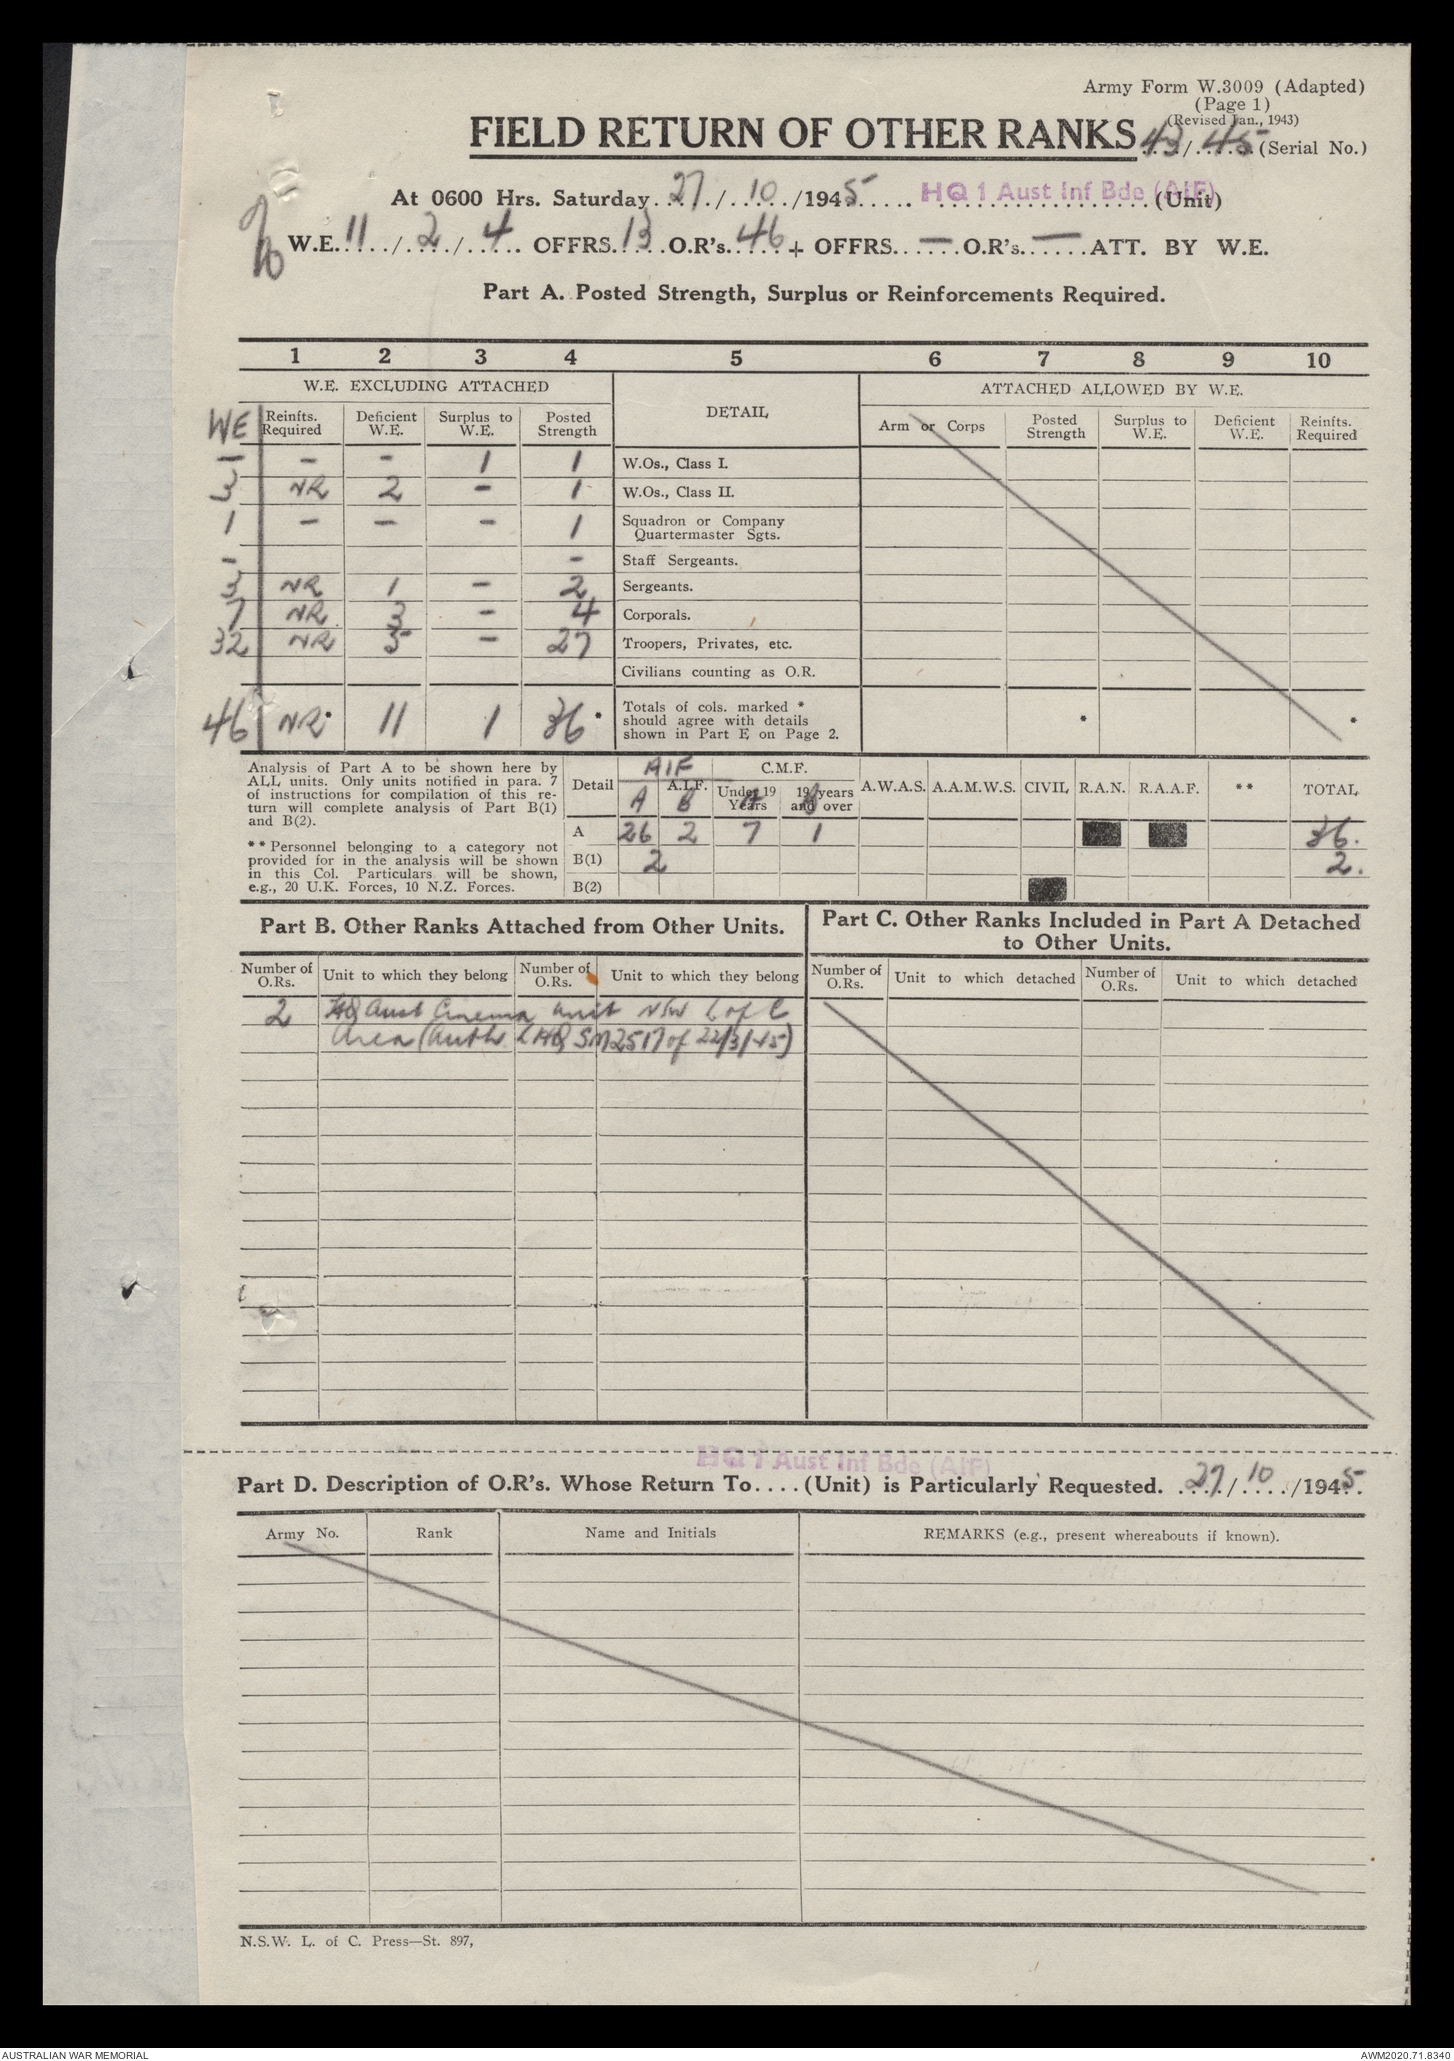 Army Form W.3009 (Adapted)
(Page 1)
(Revised Jan., 1943)
FIELD RETURN OF OTHER RANKS 43/45 (Serial No.)
At 0600 Hrs. Saturday 27/10/1945 HQ 1 Aust Inf Bde (AIF) (Unit)
W.E. 11/2/4 OFFRS. 13 O.R's. 46 + OFFRS. — O.R's. — ATT. BY W.E.
Part A. Posted Strength, Surplus or Reinforcements Required.
1 2 3 4 5 6 7 8 9 10
W.E. EXCLUDING ATTACHED DETAIL ATTACHED ALLOWED BY W.E.
WE Reinfts. Required Deficient W.E. Surplus to W.E. Posted Strength Arm or Corps Posted Strength Surplus to W.E. Deficient W.E. Reinfts. Required
- - - 1 1 W.Os., Class I.
3 NR 2 - 1 W.Os., Class II.
1 - - - 1 Squadron or Company Quartermaster Sgts.
- - Staff Sergeants.
3 NR 1 - 2 Sergeants.
7 NR 3 - 4 Corporals.
32 NR 5 - 27 Troopers, Privates, etc.
Civilians counting as O.R.
46 NR* 11 1 36 * Totals of cols. marked * should agree with details shown in Part E on Page 2. * *
Analysis of Part A to be shown here by
ALL units. Only units notified in para. 7
of instructions for compilation of this re-
turn will complete analysis of Part B(1)
and B(2).
** Personnel belonging to a category not
provided for in the analysis will be shown
in this Col. Particulars will be shown,
e.g., 20 U.K. Forces, 10 N.Z. Forces.
AIF C.M.F.
Detail A.I.F. Under 19 Years 19 years and over A.W.A.S. A.A.M.W.S. CIVIL R.A.N. R.A.A.F. ** TOTAL
A B A B
A 26 2 7 1 36.
B(1) 2 2.
B(2)
Part B. Other Ranks Attached from Other Units.
Part C. Other Ranks Included in Part A Detached
to Other Units.
Number of O.Rs. Unit to which they belong Number of O.Rs. Unit to which they belong Number of O.Rs. Unit to which detached Number of O.Rs. Unit to which detached
2 HQ Aust Cinema unit NSW L of C
Area (Auth LHQ SM2517 of 22/3/45)
HQ 1 Aust Inf Bde (AIF)
Part D. Description of O.R's. Whose Return To.... (Unit) is Particularly Requested. 27/10/1945.
Army No. Rank Name and Initials REMARKS (e.g., present whereabouts if known).
N.S.W. L. of C. Press—St. 897,
AUSTRALIAN WAR MEMORIAL AWM2020.71.8340